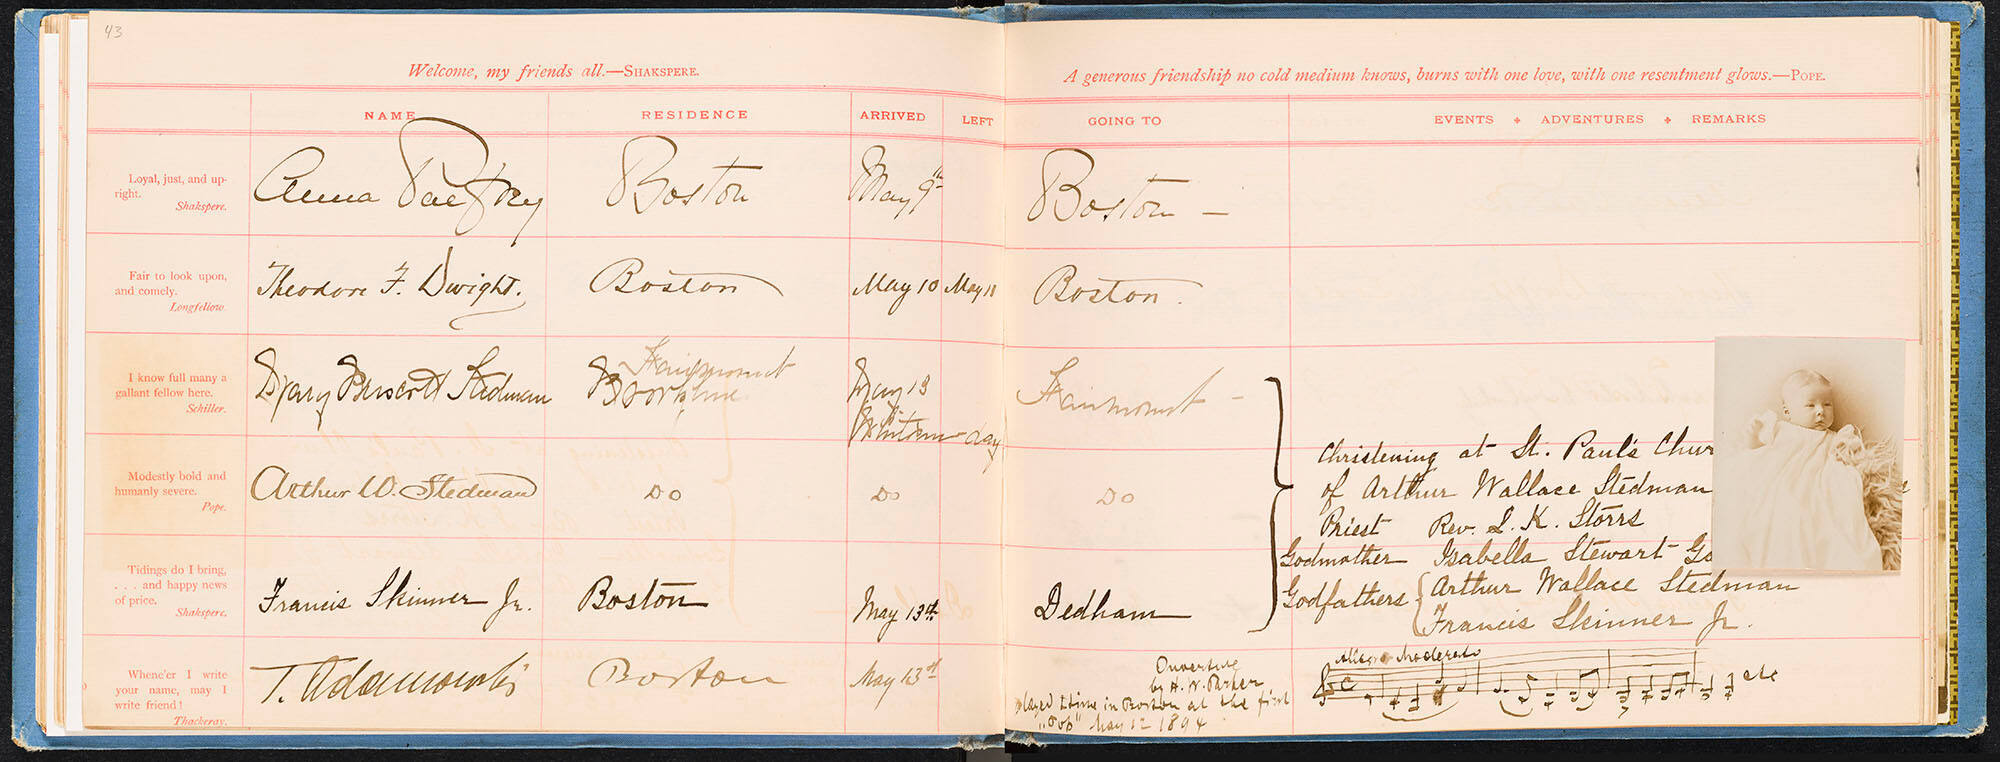 43
Welcome, my friends all.—SHAKSPERE.
NAME RESIDENCE ARRIVED LEFT
Loyal, just, and up-
right.
Shakspere.
Anna Palfrey Boston May 9th
Fair to look upon,
and comely.
Longfellow.
Theodore F. Dwight. Boston May 10 May 11
I know full many a
gallant fellow here.
Schiller.
Fairmount
Mary Prescott Stedman Brookline May 13
Whitsun-day
Modestly bold and
humanly severe.
Pope.
Arthur W. Stedman Do Do
Tidings do I bring,
. . . and happy news
of price.
Shakspere.
Francis Skinner Jr. Boston May 13th
Whene'er I write
your name, may I
write friend!
Thackeray.
T. Adamowski Boston May 13th
A generous friendship no cold medium knows, burns with one love, with one resentment glows.—POPE.
GOING TO EVENTS ✦ ADVENTURES ✦ REMARKS
Boston —
Boston.
Fairmount —
Do
Dedham
Christening at St. Paul's Chur
of Arthur Wallace Stedman
Priest Rev. L. K. Storrs
Godmother Isabella Stewart Ga
Godfathers { Arthur Wallace Stedman
Francis Skinner Jr.
Ouverture
by H. W. Parker
played I time in Boston at the first
"Pop" May 12 1894
Allegro Moderato
etc